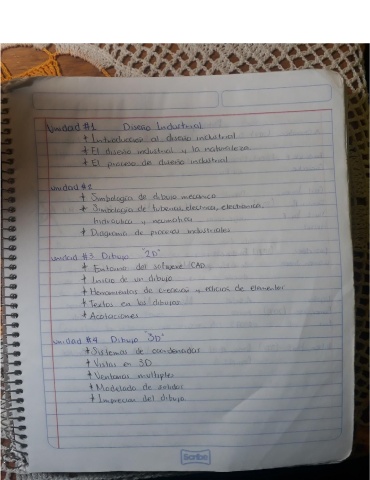 Unidad #1 Diseño Industrial
+ Introducción al diseño industrial
+ El diseño industrial y la naturaleza
+ El proceso de diseño industrial
unidad #2
+ Simbologia de dibujo mecánico
+ Simbologia de tuberia, electrica, electronica,
hidraulica y neumatica
+ Diagrama de procesos industriales
unidad #3 Dibujo "2D"
+ Entorno del software CAD
+ Inicio de un dibujo
+ Herramientas de creacion y edicion de elementos
+ Textos en los dibujos
+ Acotaciones
unidad #4 Dibujo "3D"
+ Sistemas de coordenadas
+ Vistas en 3D
+ Ventanas multiples
+ Modelado de solidos
+ Impresion del dibujo
Scribe